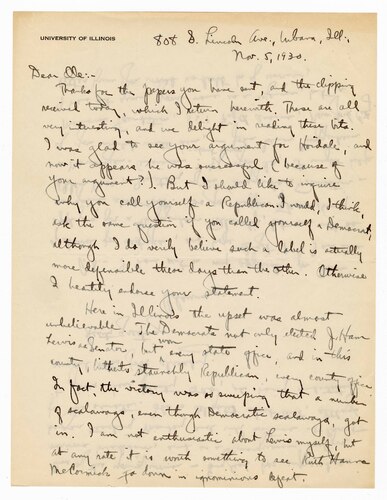 UNIVERSITY OF ILLINOIS
808 S. Lincoln Ave., Urbana, Ill.
Nov. 5, 1930.
Dear Ole:-
Thanks for the papers you have sent, and the clipping
received today, which I return herewith. These are all
very interesting, and we delight in reading these bits.
I was glad to see your argument for Hoidale, and
now it appears he was successful (because of
your argument?). But I should like to inquire
why you call yourself a Republican. I would, I think,
ask the same question if you called yourself a Democrat,
although I do verily believe such label is actually
more defensible these days than the other. Otherwise
I heartily endorse your statement.
Here in Illinois the upset was almost
unbelievable. The Democrats not only elected J. Ham
Lewis as Senator, but won every state office, and in this
county, hitherto staunchly Republican, every county office.
In fact, the victory was so sweeping that a number
of scalawags, even though Democratic scalawags, got
in. I am not enthusiastic about Lewis myself, but
at any rate it is worth something to see Ruth Hanna
McCormick go down in ignominious defeat.